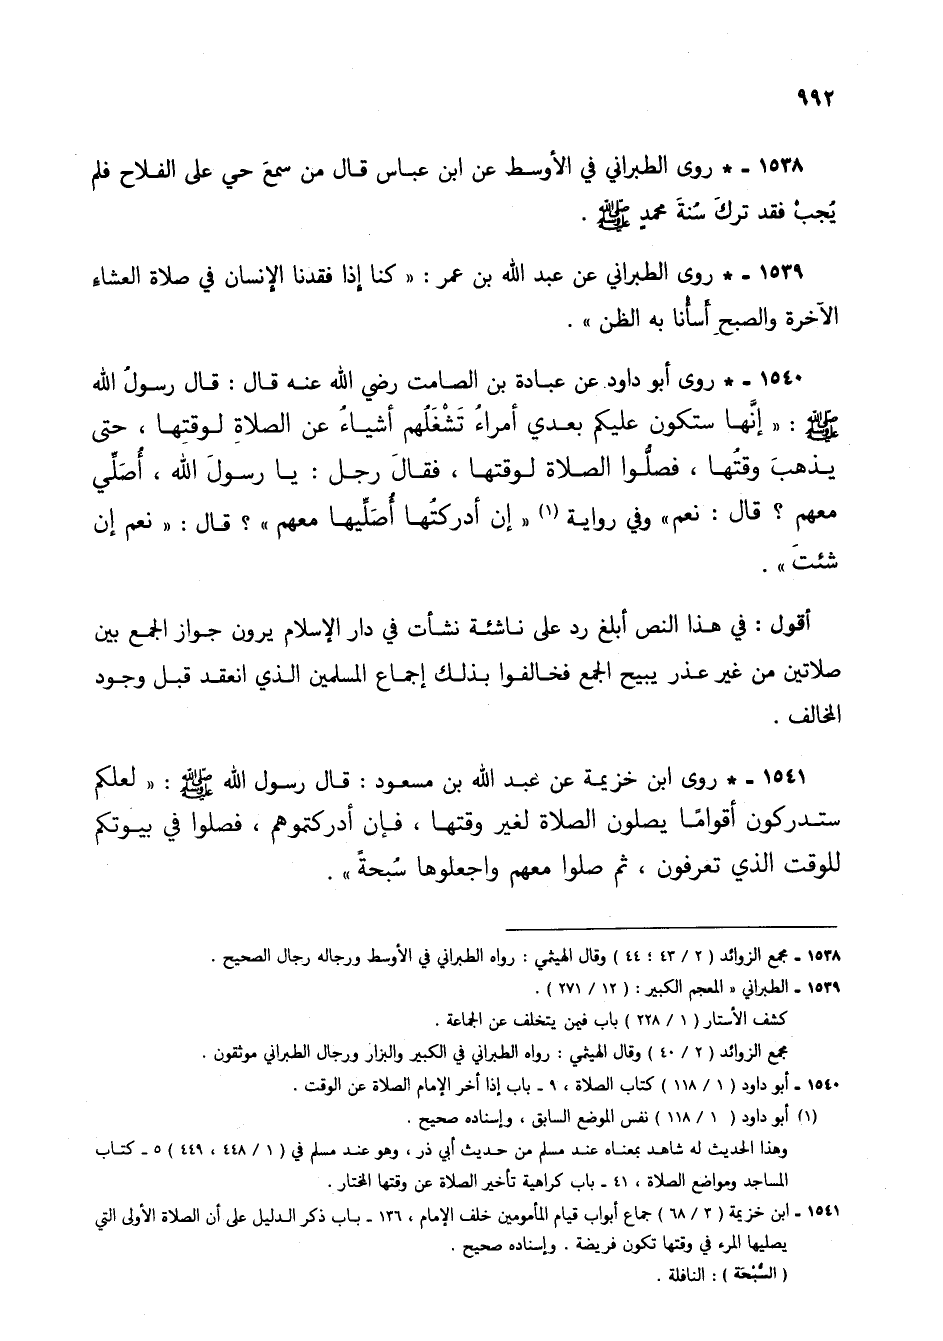 ٩٩٢
١٥٣٨ ـ * روى الطبراني في الأوسط عن ابن عباس قال من سمعَ حي على الفلاح فلم
يُجبْ فقد تركَ سُنةَ محمدٍ ﷺ .
١٥٣٩ ـ * روى الطبراني عن عبد الله بن عمر : « كنا إذا فقدنا الإنسان في صلاة العشاء
الآخرة والصبحِ أسأْنا به الظن » .
١٥٤٠ ـ * روى أبو داود عن عبادة بن الصامت رضي الله عنه قال : قال رسولُ الله
ﷺ : « إنَّها ستكون عليكم بعدي أمراءُ تَشْغَلُهم أشياءُ عن الصلاةِ لوقتها ، حتى
يذهبَ وقتُها ، فصلُّوا الصلاة لوقتها ، فقالَ رجل : يا رسولَ الله ، أُصَلِّي
معهم ؟ قال : نعم» وفي رواية (١) « إن أدركتُها أُصَلِّيها معهم » ؟ قال : « نعم إن
شئتَ » .
أقول : في هذا النص أبلغ رد على ناشئة نشأت في دار الإسلام يرون جواز الجمع بين
صلاتين من غير عذر يبيح الجمع فخالفوا بذلك إجماع المسلمين الذي انعقد قبل وجود
المخالف .
١٥٤١ ـ * روى ابن خزيمة عن عبد الله بن مسعود : قال رسول الله ﷺ : « لعلكم
ستدركون أقوامًا يصلون الصلاة لغير وقتها ، فإن أدركتموهم ، فصلوا في بيوتكم
للوقت الذي تعرفون ، ثم صلوا معهم واجعلوها سُبحةً » .
١٥٣٨ ـ مجمع الزوائد ( ٢ / ٤٣ ؛ ٤٤ ) وقال الهيثمي : رواه الطبراني في الأوسط ورجاله رجال الصحيح .
١٥٣٩ ـ الطبراني « المعجم الكبير : ( ١٢ / ٢٧١ ) .
كشف الأستار ( ١ / ٢٢٨ ) باب فيمن يتخلف عن الجماعة .
مجمع الزوائد ( ٢ / ٤٠ ) وقال الهيثمي : رواه الطبراني في الكبير والبزار ورجال الطبراني موثقون .
١٥٤٠ ـ أبو داود ( ١ / ١١٨ ) كتاب الصلاة ، ٩ ـ باب إذا أخر الإمام الصلاة عن الوقت .
(١) أبو داود ( ١ / ١١٨ ) نفس الموضع السابق ، وإسناده صحيح .
وهذا الحديث له شاهد بمعناه عند مسلم من حديث أبي ذر ، وهو عند مسلم في ( ١ / ٤٤٨ ، ٤٤٩ ) ٥ ـ كتاب
المساجد ومواضع الصلاة ، ٤١ ـ باب كراهية تأخير الصلاة عن وقتها المختار .
١٥٤١ ـ ابن خزيمة ( ٣ / ٦٨ ) جماع أبواب قيام المأمومين خلف الإمام ، ١٣٦ ـ باب ذكر الدليل على أن الصلاة الأولى التي
يصليها المرء في وقتها تكون فريضة . وإسناده صحيح .
( السُّبْحَة ) : النافلة .